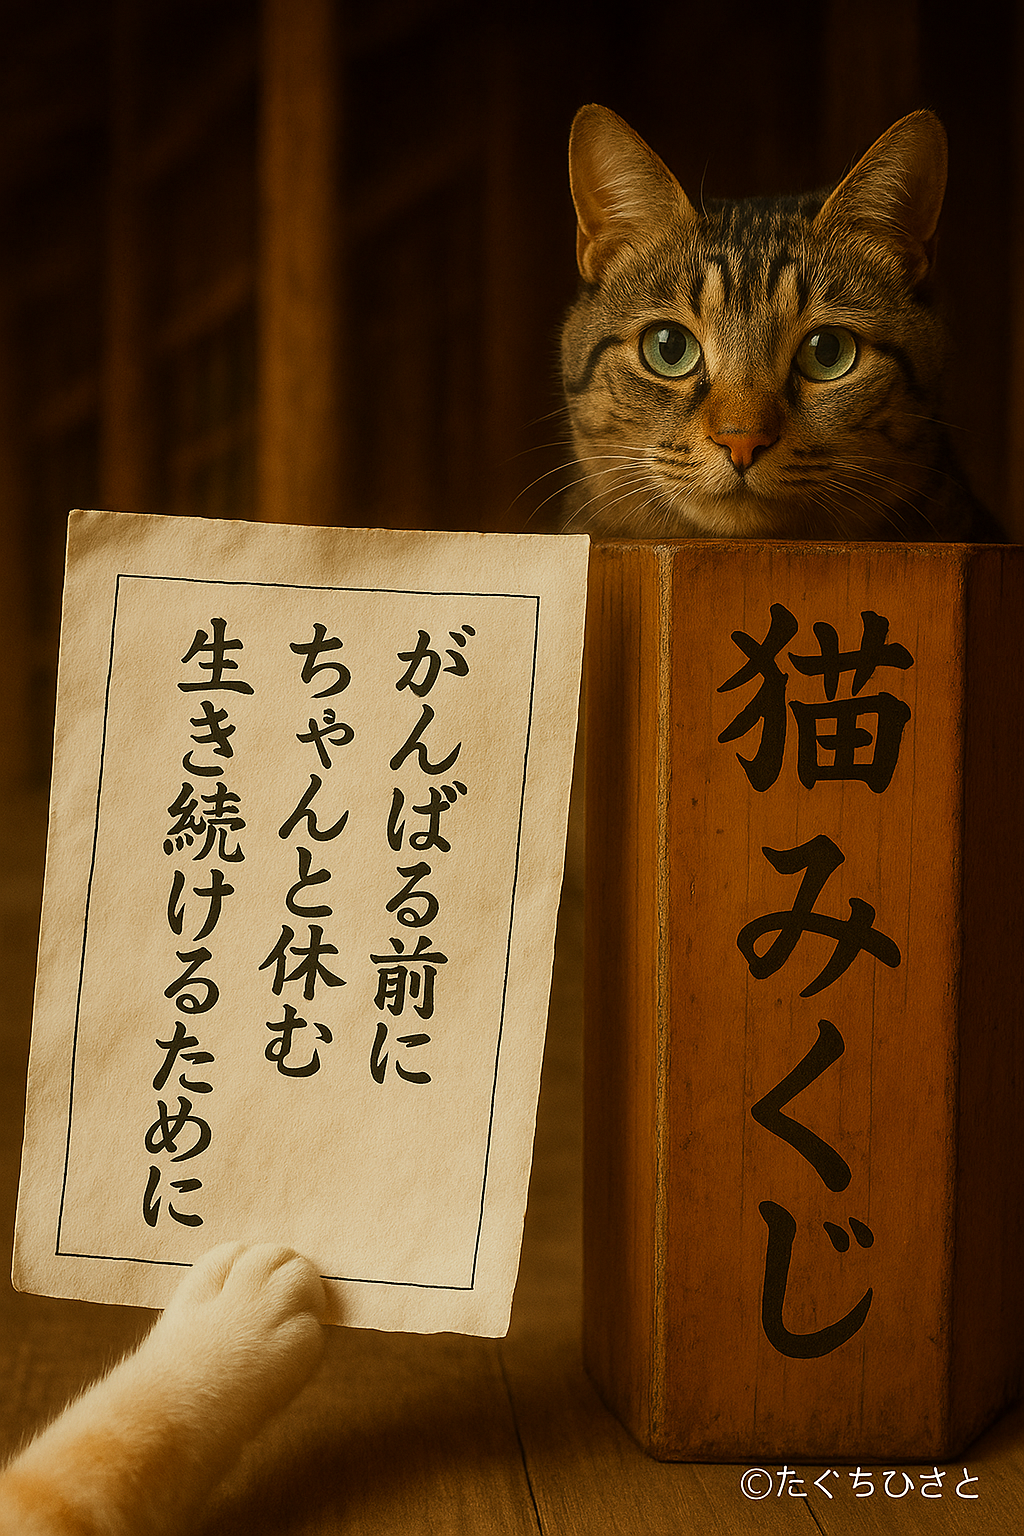 がんばる前に
ちゃんと休む
生き続けるために
猫みくじ
©たぐちひさと